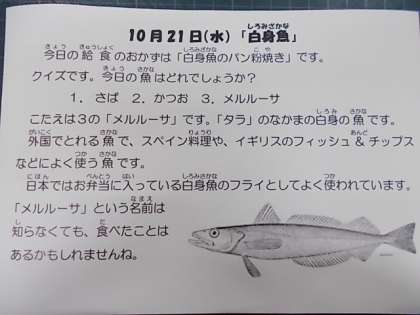 10月21日(水)「白身魚」
今日の給食のおかずは「白身魚のパン粉焼き」です。
クイズです。今日の魚はどれでしょうか?
1.さば 2.かつお 3.メルルーサ
こたえは3の「メルルーサ」です。「タラ」のなかまの白身の魚です。
外国でとれる魚で、スペイン料理や、イギリスのフィッシュ&チップス
などによく使う魚です。
日本ではお弁当に入っている白身魚のフライとしてよく使われています。
「メルルーサ」という名前は
知らなくても、食べたことは
あるかもしれませんね。